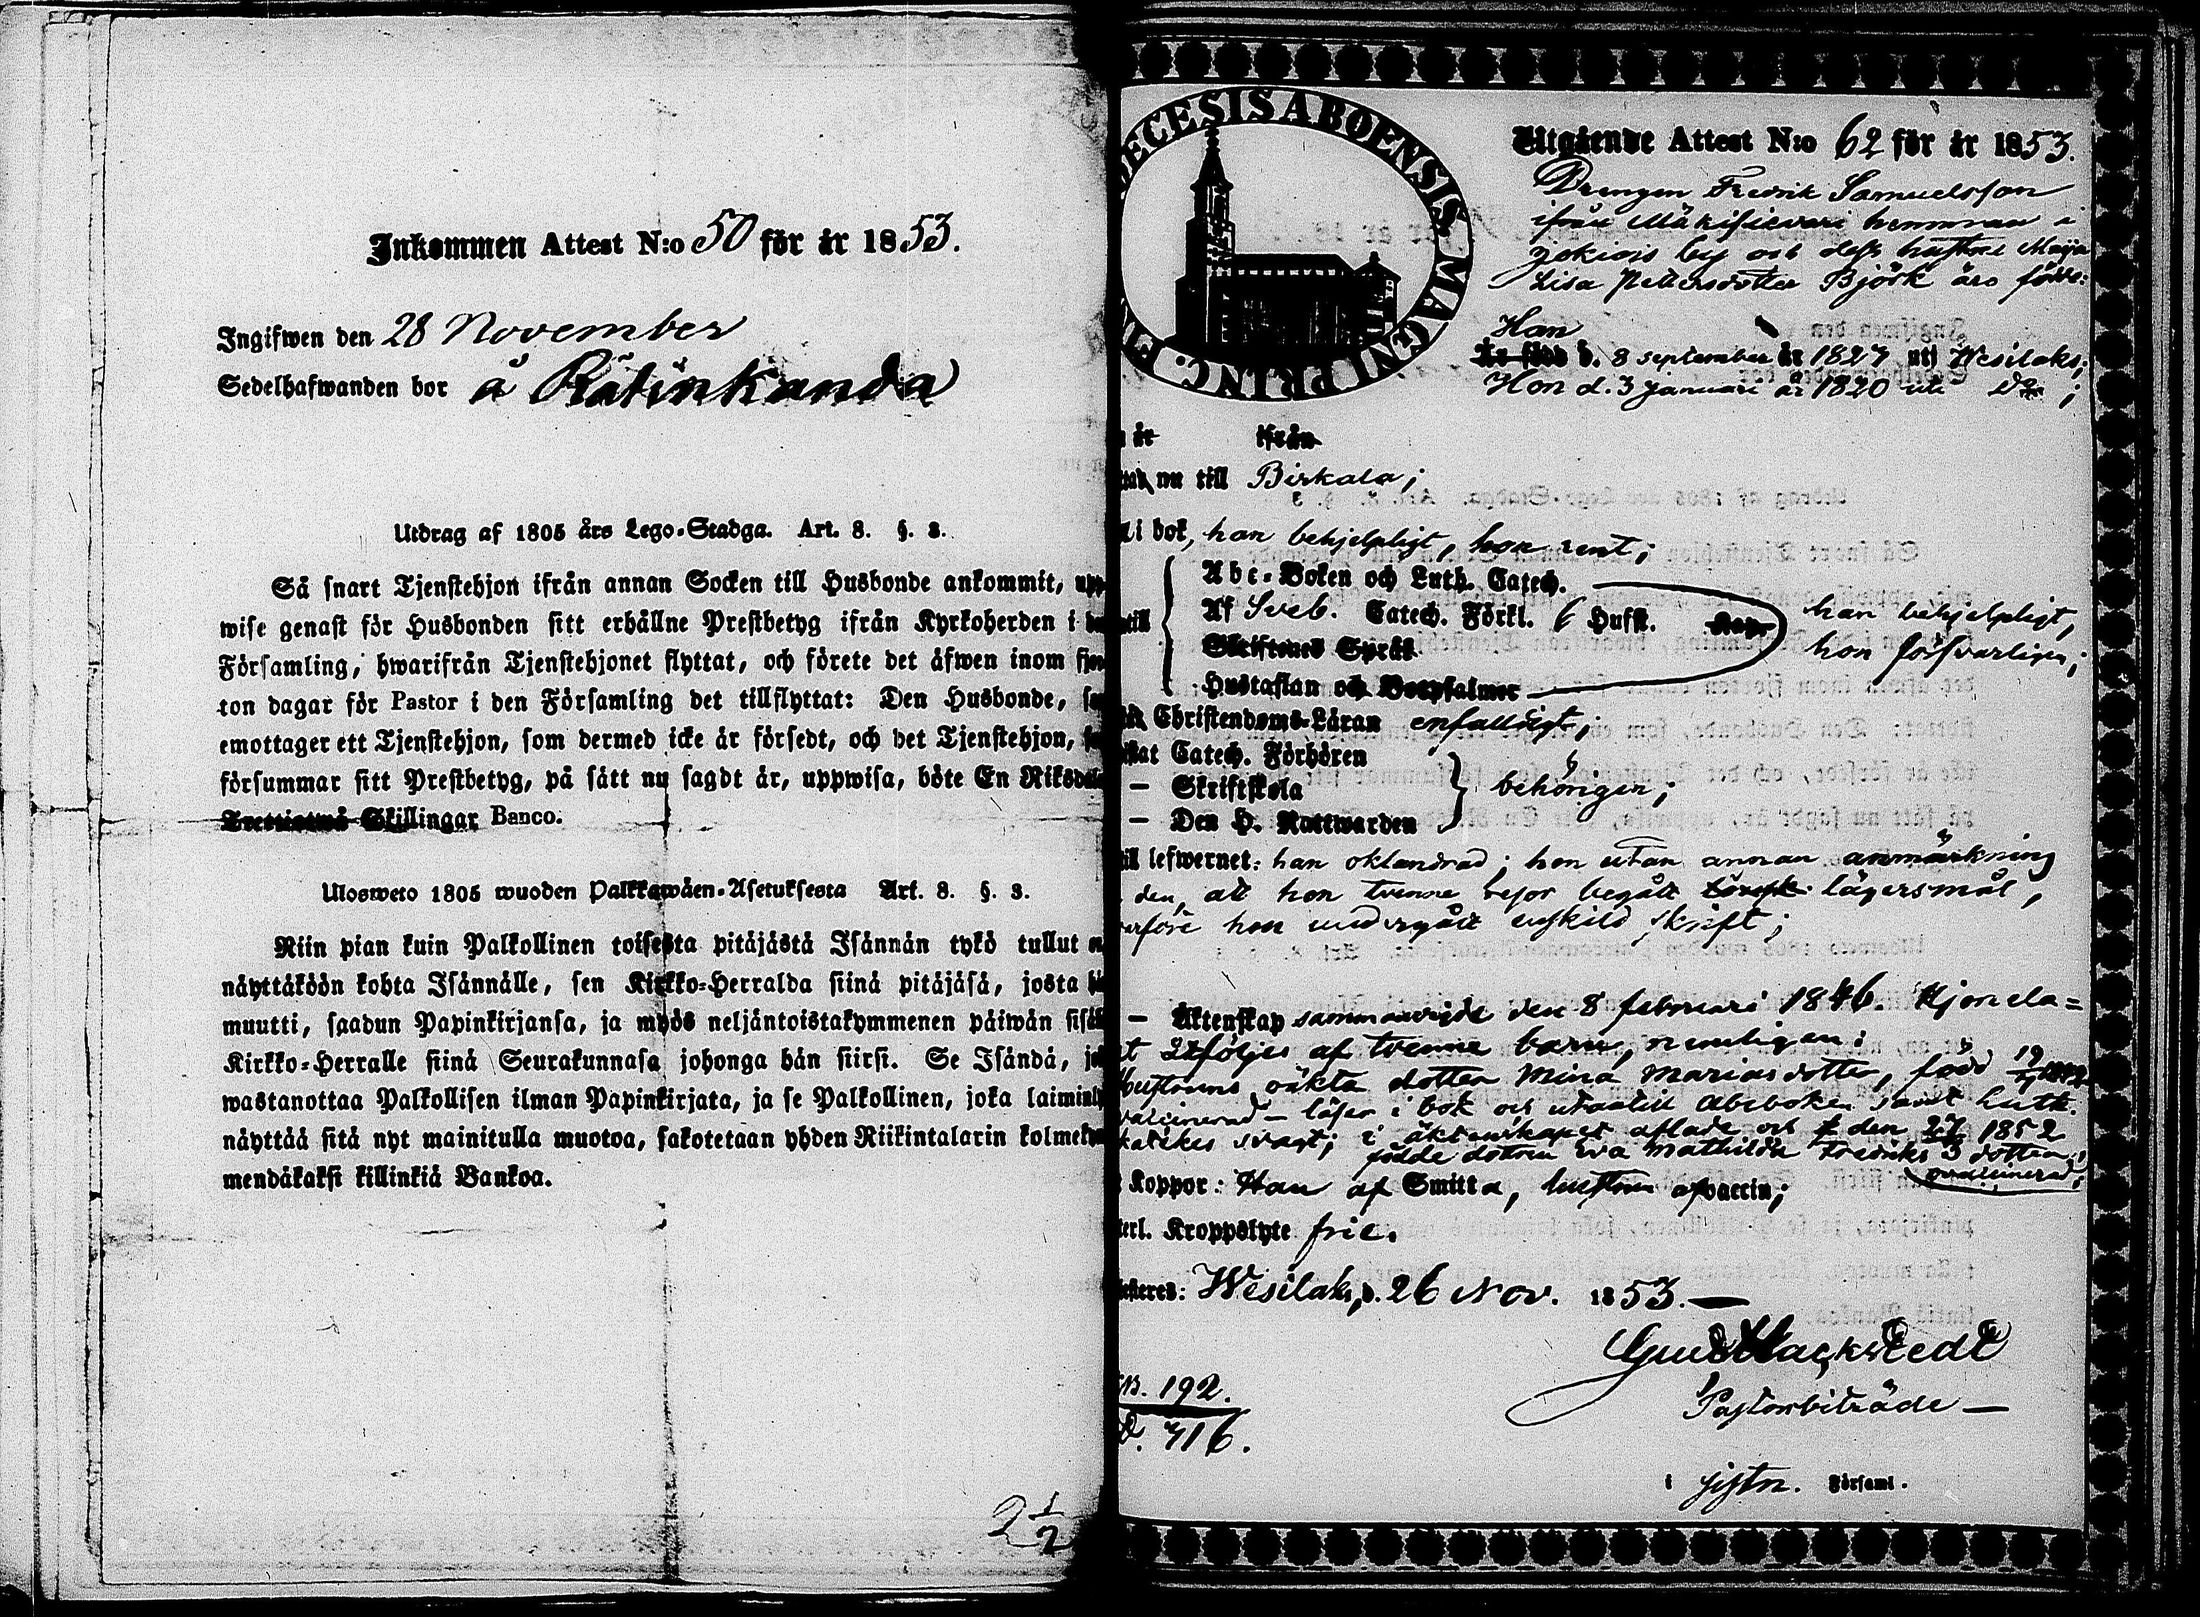 Inkommen Attest N:o 50 för år 1853.
Ingifwen den 28 November
Sedelhafwanden bor å Rätinkanda
Utdrag af 1805 års Lego-Stadga. Art. 8. §. 3.
Så snart Tjenstehjon ifrån annan Socken till Husbonde ankommit, upp-
wise genast för Husbonden sitt erhållne Prestbetyg ifrån Kyrkoherden i
Församling, hwarifrån Tjenstehjonet flyttat, och förete det äfwen inom fjor-
ton dagar för Pastor i den Församling det tillflyttat: Den Husbonde,
emottager ett Tjenstehjon, som dermed icke är försedt, och det Tjenstehjon,
försummar sitt Prestbetyg, på sätt nu sagdt är, uppwisa, böte En Riksdal
Trettiotwå Skillingar Banco.
Ulosweto 1805 wuoden Palkkawäen-Asetuksesta Art. 8. §. 3.
Niin pian kuin Palkollinen toisesta pitäjästä Isännän tykö tullut
näyttäköön kohta Isännälle, sen Kirkko-Herralda siinä pitäjäsä, josta
muutti, saadun Papinkirjansa, ja myös neljäntoistakymmenen päiwän
Kirkko-Herralle siinä Seurakunnasa johonga hän siirsi. Se Isändä,
wastanottaa Palkollisen ilman Papinkirjata, ja se Palkollinen, joka laimin
näyttää sitä nyt mainitulla muotoa, sakotetaan yhden Riikintalarin kolmeky
mendäkaksi killinkiä Bankoa.
2 1/2
ECESIS ABOENSIS MAGNI PRINC. F
Utgående Attest N:o 62 för år 1853.
Drengen Fredrik Samuelsson
ifrån Mäkisievari hemman i
Jokiois by och dess hustru Maja
Lisa Pettersdotter Björk äro födde:
Han
Är född d. 8 september år 1827 uti Wesilaks;
Hon d. 3 januari år 1820 uti Do;
år ifrån
nu till Birkala;
i bok, han behjelpligt, hon rent;
Abc-Boken och Luth. Catech.
till Af Sveb. Catech. Förkl. 6 Hufst. han behjelpligt,
Skriftenes Språk hon försvarligen;
Hustaflan och Botpsalmer
Christendoms-Läran enfalldigt;
Catech. Förhören
— Skriftskola behörigen;
— Den H. Nattwarden
till lefwernet: han oklandrad; hon utan annan anmärkning
den, att hon tvenne resor begått lägersmål,
erföre hon undergått enskild skrift;
— Äktenskap sammanvigde den 8 februari 1846. Hjonela=
t åtföljes af tvenne barn, nemligen:
Hustruns oäkta dotter Mina Mariasdotter, född
vaccinerad — läser i bok och utantill Abcboken samt Luth.
katekes svagt; i äktenskapet aflade och den 1852
födde dottren Eva Mathilda Fredriksdotter,
ovaccinerad;
Koppor: Han af Smitta, hustrun af vaccin;
terl. Kroppslyte frie.
esteres: Wesilaks, d. 26 Nov. 1853. —
Gust Hackstedt
Pastorsbiträde —
B. 192.
D. 716.
i sistn. Församl.